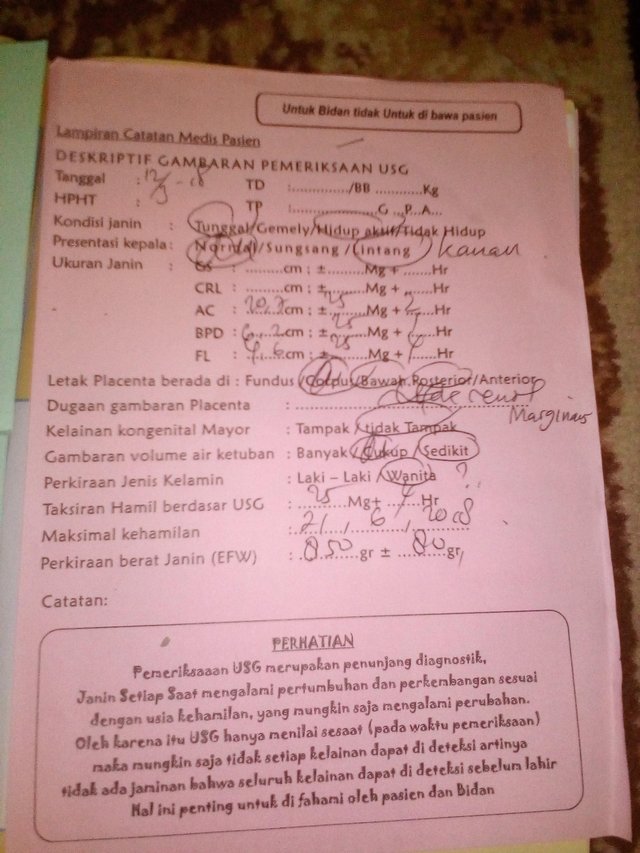 Untuk Bidan tidak Untuk di bawa pasien
Lampiran Catatan Medis Pasien
DESKRIPTIF GAMBARAN PEMERIKSAAN USG
Tanggal : 12/3-08 TD :............../BB ............Kg
HPHT : TP :.....................G ...P...A...
Kondisi janin : Tunggal/Gemely/Hidup aktif/Tidak Hidup
Presentasi kepala : Normal/Sungsang /Lintang kanan
Ukuran Janin : GS : .........cm ; ±.........Mg + ......Hr
CRL : .........cm ; ±.........Mg + ......Hr
AC : 20,7 cm ; ± 25 Mg + 2 Hr
BPD : 6,2 cm ; ± 25 Mg + Hr
FL : 4,6 cm ; ± 25 Mg + 4 Hr
Letak Placenta berada di : Fundus /Corpus/Bawah Posterior/Anterior
Dugaan gambaran Placenta :
Marginalis
Kelainan kongenital Mayor : Tampak /tidak Tampak
Gambaran volume air ketuban : Banyak / Cukup / Sedikit
Perkiraan Jenis Kelamin : Laki – Laki /Wanita ?
Taksiran Hamil berdasar USG : 25 Mg+ 4 Hr
Maksimal kehamilan : 21 / 6 / 2008
Perkiraan berat Janin (EFW) : 850 gr ± 80 gr
Catatan:
PERHATIAN
Pemeriksaaan USG merupakan penunjang diagnostik,
Janin Setiap Saat mengalami pertumbuhan dan perkembangan sesuai
dengan usia kehamilan, yang mungkin saja mengalami perubahan.
Oleh karena itu USG hanya menilai sesaat (pada waktu pemeriksaan)
maka mungkin saja tidak setiap kelainan dapat di deteksi artinya
tidak ada jaminan bahwa seluruh kelainan dapat di deteksi sebelum lahir
Hal ini penting untuk di fahami oleh pasien dan Bidan